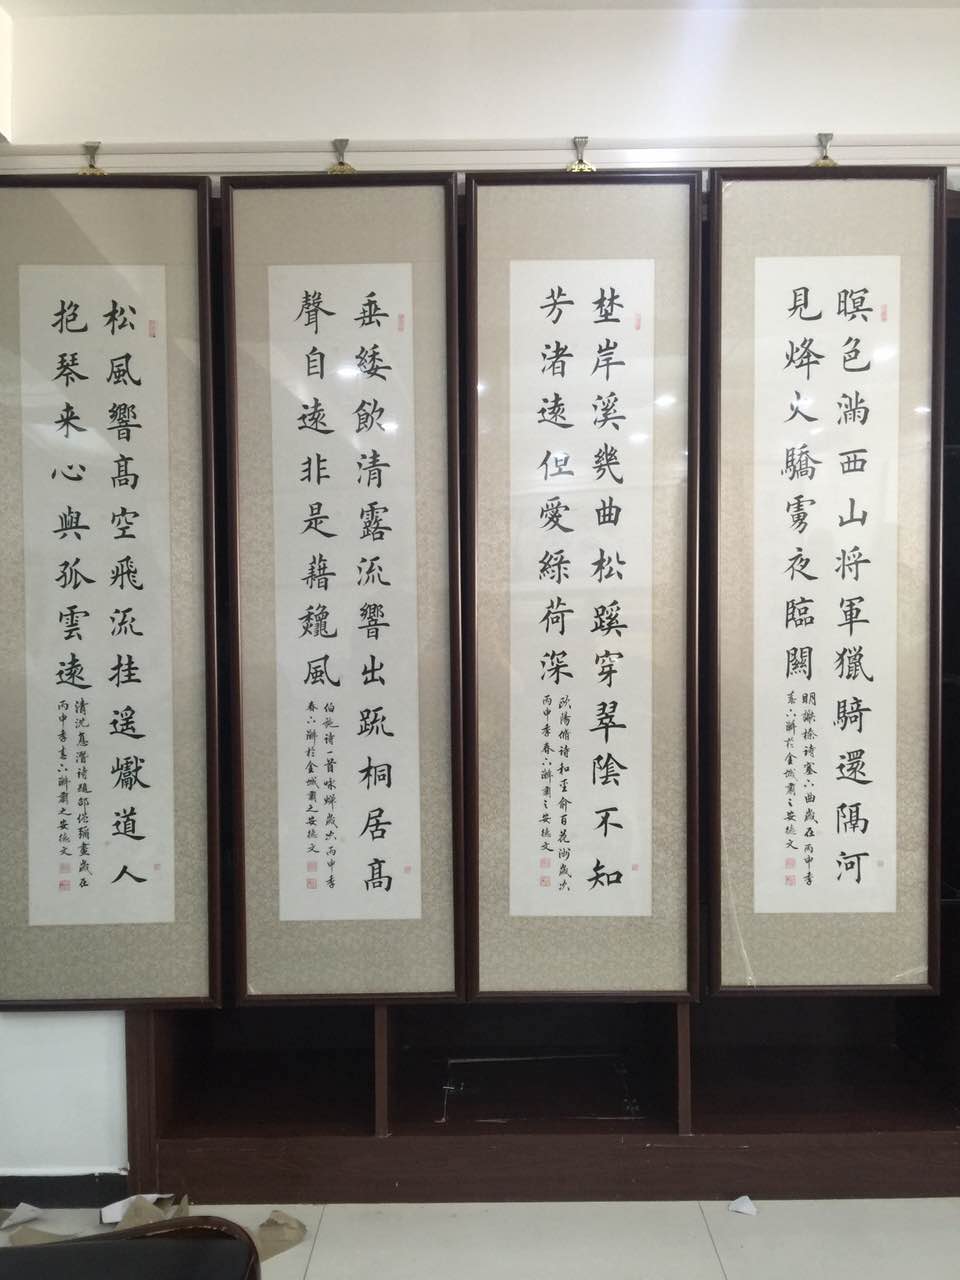 暝色滿西山将軍獵騎還隔河
見烽火驕虜夜臨關
明謝榛诗塞下曲歲在丙申季
春下澣於金城肅之安德文
埜岸溪幾曲松蹊穿翠陰不知
芳渚遠但愛綠荷深
歐陽脩诗和聖俞百花洲歲次
丙申季春下澣肅之安德文
垂緌飲清露流響出疏桐居髙
聲自遠非是藉龝風
伯施诗一首咏蟬歲次丙申季
春下澣於金城肅之安德文
松風響髙空飛流挂遥巘道人
抱琴来心與孤雲遠
清沈德潛诗題邵僧彌畫歲在
丙申季春下澣肅之安德文